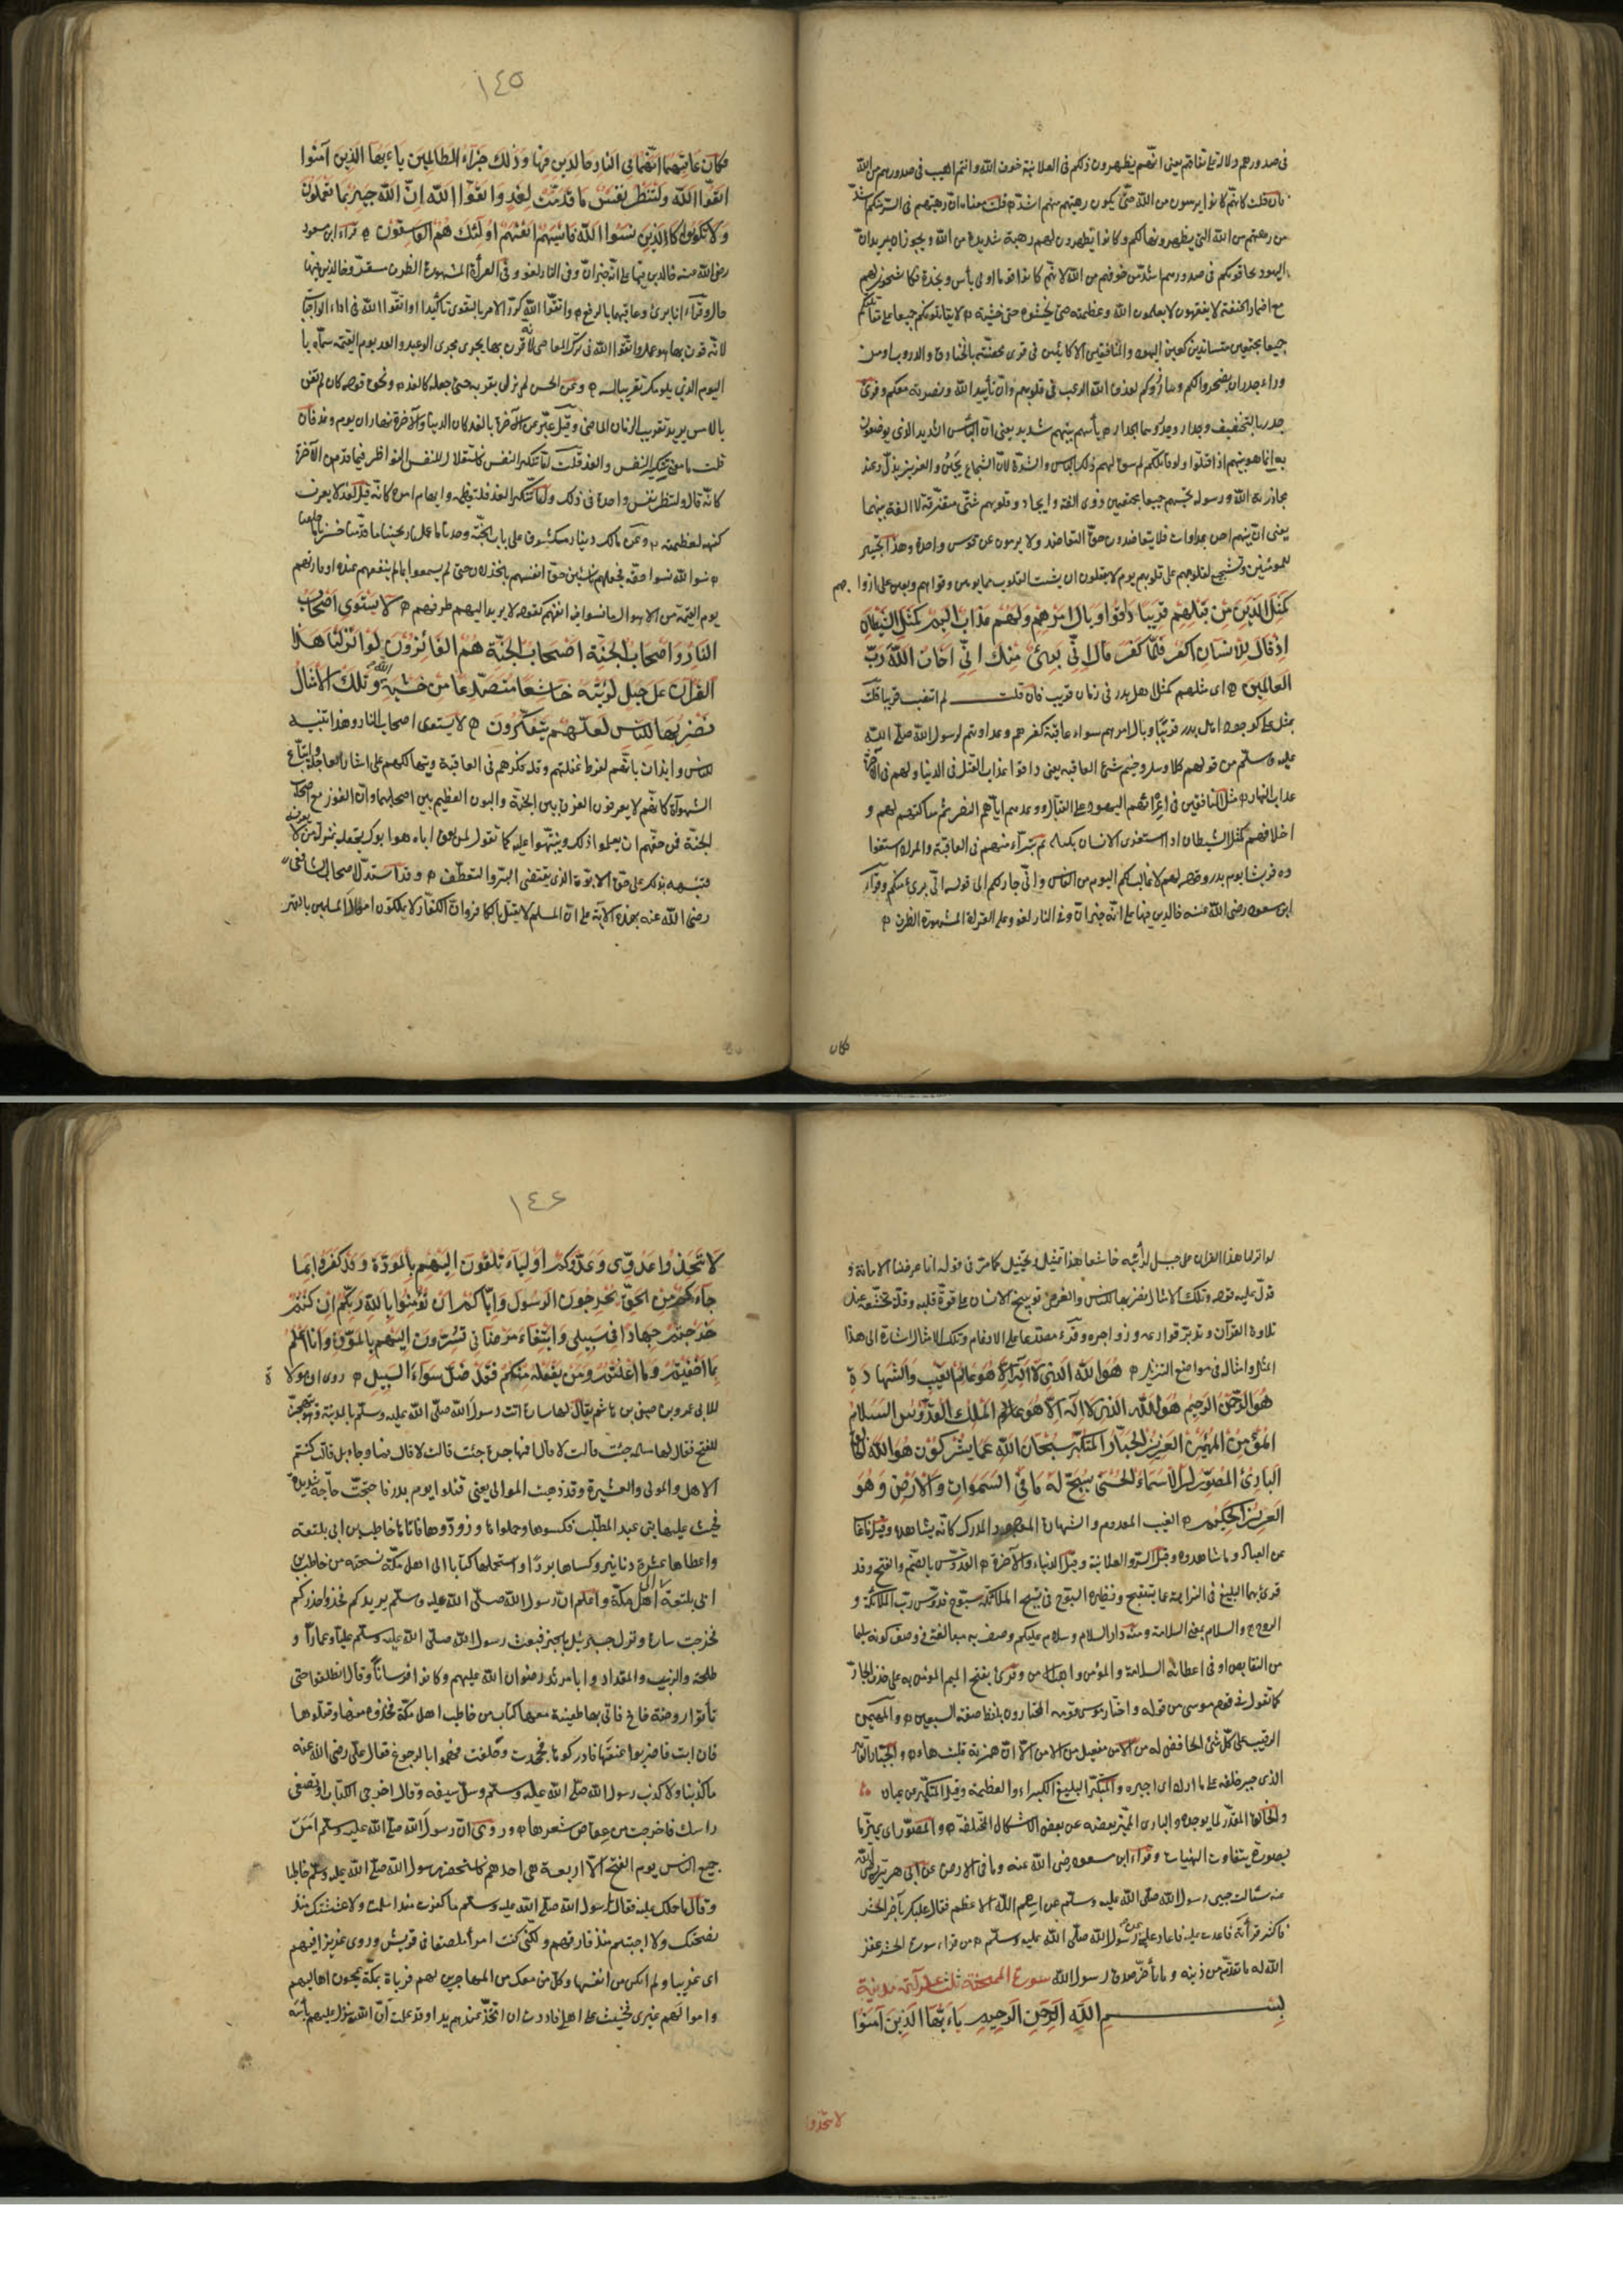 في صدورهم دلالة على نفاقهم يعني انهم يظهرون لكم في العلانية خوف الله وانتم اهيب في صدورهم من الله
فان قلت كانهم كانوا يرهبون من الله حتى يكون رهبتهم منهم اشد قلت معناه ان رهبتهم في السر منكم اشد
من رهبتهم من الله التي يظهرونها لكم وكانوا يظهرون لهم رهبة شديدة من الله ويجوز ان يريد ان
اليهود يخافونكم في صدورهم اشد من خوفهم من الله لانهم كانوا قوما اولى بأس ونجدة فكانوا يتشجعون لهم
مع اضمار الخيفة لا يفقهون لا يعلمون الله وعظمته حتى يخشوه حق خشيته لا يقاتلونكم لا يقدرون على مقاتلتكم
جميعا مجتمعين متساندين يعني اليهود والمنافقين الا كائنين في قرى محصنة بالخنادق والدروب او من
وراء جدر دون ان يصحروا لكم ويبارزوكم لقذف الله الرعب في قلوبهم وان تأييد الله ونصرته معكم وقرئ
جدر بالتخفيف وجدار وجدر وهما الجدار بأسهم بينهم شديد يعني ان البأس الشديد الذي يوصفون
به انما هو بينهم اذا اقتتلوا ولو قاتلوكم لم يبق لهم ذلك البأس والشدة لان الشجاع يجبن والعزيز يذل عند
محاربة الله ورسوله تحسبهم جميعا مجتمعين ذوى الفة واتحاد وقلوبهم شتى متفرقة لا الفة بينها
يعني ان بينهم احن وعداوات فلا يتعاضدون حق التعاضد ولا يرمون عن قوس واحدة وهذا تجسير
للمؤمنين وتشجيع لقلوبهم على قتالهم قوم لا يعقلون ان تشتت القلوب مما يوهن قواهم ويعين على ارواحهم
كمثل الذين من قبلهم قريبا ذاقوا وبال امرهم ولهم عذاب اليم كمثل الشيطان
اذ قال للانسان اكفر فلما كفر قال اني بريء منك اني اخاف الله رب
العالمين اى مثلهم كمثل اهل بدر في زمان قريب فان قلت بم انتصب قريبا قلت
بمثل على كوجود مثل بدر قريبا وبال امرهم سوء عاقبة كفرهم وعداوتهم لرسول الله صلى الله
عليه وسلم من قولهم كلأ وبيل وخيم سيئ العاقبة يعني ذاقوا عذاب القتل في الدنيا ولهم في الآخرة
عذاب النار مثل المنافقين في اغرائهم اليهود على القتال ووعدهم اياهم النصر ثم متاركتهم لهم و
اخلافهم كمثل الشيطان اذا استغوى الانسان بكيده ثم تبرأ منهم في العاقبة والمراد استغوا
وه قريشا يوم بدر وقوله لهم لا غالب لكم اليوم من الناس واني جار لكم الى قوله اني بريء منكم وقرأ
ابن مسعود رضى الله عنه خالدين فيها على انه خبر ان وفي النار لغو وعلى القراءة المشهورة الظرف
فكان
١٤٥
فكان عاقبتهما انهما في النار خالدين فيها وذلك جزاء الظالمين ياءيها الذين آمنوا
اتقوا الله ولتنظر نفس ما قدمت لغد واتقوا الله ان الله خبير بما تعملون
ولا تكونوا كالذين نسوا الله فانسيهم انفسهم اولئك هم الفاسقون قراءة ابن مسعود
رضى الله عنه خالدين فيها على انه خبر ان وفي النار لغو وفي القراءة المشهورة الظرف مستقر وخالدين فيها
حال وقرئ انا بريء وعاقبتهما بالرفع واتقوا الله كرر الامر بالتقوى تأكيدا او اتقوا الله في اداء الواجبات
لانه قرن بما هو عمل واتقوا الله في ترك المعاصي لانه قرن بما يجرى مجرى الوعيد والغد يوم القيمة سماه با
اليوم الذي يلي يومك تقريبا له وعن الحسن لم يزل يقربه حتى جعله كالغد ونحوه قوله كان لم تغن
بالامس يريد تقريب الزمان الماضي وقيل عبر عن الآخرة بالغد كان الدنيا والآخرة نهاران يوم وغد فان
قلت ما معنى تنكير النفس والغد قلت اما تنكير النفس فاستقلال للانفس النواظر فيما قدمن للآخرة
كانه قال ولتنظر نفس واحدة في ذلك واما تنكير الغد فلتعظيمه وابهام امره كانه قيل لغد لا يعرف
كنهه لعظمته وعن مالك بن دينار مكتوب على باب الجنة وجدنا ما عملنا ربحنا ما قدمنا خسرنا ما خلفنا
نسوا الله نسوا حقه فجعلهم ناسين حق انفسهم بالخذلان حتى لم يسعوا لها بما ينفعهم عنده او فاريهم
يوم القيمة من الاهوال ما نسوا فيه انفسهم كقوله لا يرتد اليهم طرفهم لا يستوى اصحاب
النار واصحاب الجنة اصحاب الجنة هم الفائزون لو انزلنا هذا
القرآن على جبل لرأيته خاشعا متصدعا من خشية الله وتلك الامثال
نضربها للناس لعلهم يتفكرون لا يستوى اصحاب النار وهذا تنبيه
للناس وايذان بانهم لفرط غفلتهم وقلة فكرهم في العاقبة وتهالكهم على ايثار العاجلة واتباع
الشهوات كانهم لا يعرفون الفرق بين الجنة والنار والبون العظيم بين اصحابهما وان الفوز مع اصحاب
الجنة فمن حقهم ان يعلموا ذلك وينبهوا عليه كما تقول لمن يعق اباه هو ابوك تجعله بمنزلة من لا يعرفه
فتنبهه بذلك على حق الابوة الذي يقتضى البر والتعطف وقد استدل اصحاب الشافعي
رضى الله عنه بهذه الآية على ان المسلم لا يقتل بالكافر وان الكفار لا يملكون اموال المسلمين بالقهر
لو انزلنا هذا القرآن على جبل لرأيته خاشعا هذا تمثيل وتخييل كما مر في قوله انا عرضنا الامانة و
قد دل عليه قوله وتلك الامثال نضربها للناس والغرض توبيخ الانسان على قسوة قلبه وقلة تخشعه عند
تلاوة القرآن وتدبر قوارعه وزواجره وقرئ مصدعا على الادغام وتلك الامثال اشارة الى هذا
المثل وامثاله في مواضع التنزيل هو الله الذي لا اله الا هو عالم الغيب والشهادة
هو الرحمن الرحيم هو الله الذي لا اله الا هو الملك القدوس السلام
المؤمن المهيمن العزيز الجبار المتكبر سبحان الله عما يشركون هو الله الخالق
البارئ المصور له الاسماء الحسنى يسبح له ما في السموات والارض وهو
العزيز الحكيم الغيب المعدوم والشهادة الموجود المدرك كانه يشاهده وقيل ما غاب
عن العباد وما شاهدوه وقيل السر والعلانية وقيل الدنيا والآخرة القدوس بالضم والفتح وقد
قرئ بهما البليغ في النزاهة عما يستقبح ونظيره السبوح في تسبيح الملائكة سبوح قدوس رب الملائكة و
الروح والسلام بمعنى السلامة ومنه دار السلام وسلام عليكم وصف به مبالغة في وصف كونه سليما
من النقايص او في اعطائه السلامة والمؤمن واهب الامن وقرئ بفتح الميم المؤمن به على حذف الجار
كما تقول في قوم موسى من قوله واختار موسى قومه المختارون بلفظ صفة السبعين والمهيمن
الرقيب على كل شئ الحافظ له مفيعل من الامن الا ان همزته قلبت هاء والجبار القاهر
الذي جبر خلقه على ما اراد اى اجبره والمتكبر البليغ الكبرياء والعظمة وقيل المتكبر عن عباده
والخالق المقدر لما يوجده والبارئ المميز بعضه عن بعض بالاشكال المختلفة والمصور اى يميزها
بصورة بتفاوت الهيئات وقرأ ابن مسعود رضى الله عنه وما في الارض عن ابي هريرة رضى الله
عنه سألت حبيبي رسول الله صلى الله عليه وسلم عن اسم الله الاعظم فقال عليك بآخر الحشر
فاكثر قرأته فاعدت عليه فاعاد على عن رسول الله صلى الله عليه وسلم من قراء سورة الحشر غفر
الله له ما تقدم من ذنبه وما تأخر صدق رسول الله سورة الممتحنة ثلث عشر آية مدنية
بسم الله الرحمن الرحيم ياءيها الذين آمنوا
لا تتخذوا
١٤٦
لا تتخذوا عدوى وعدوكم اولياء تلقون اليهم بالمودة وقد كفروا بما
جاءكم من الحق يخرجون الرسول واياكم ان تؤمنوا بالله ربكم ان كنتم
خرجتم جهادا في سبيلي وابتغاء مرضاتي تسرون اليهم بالمودة وانا اعلم
بما اخفيتم وما اعلنتم ومن يفعله منكم فقد ضل سواء السبيل روى ان مولاة
لابي عمرو بن صيفي بن هاشم يقال لها سارة اتت رسول الله صلى الله عليه وسلم بالمدينة وهو يتجهز
للفتح فقال لها امسلمة جئت قالت لا قال افمهاجرة جئت قالت لا قال فما جاء بك قالت كنتم
الاهل والموالى والعشيرة وقد ذهبت الموالى يعني قتلوا يوم بدر فاحتجت حاجة شديدة
فحث عليها بني عبد المطلب فكسوها وحملوها وزودوها فاتاها حاطب بن ابي بلتعة
واعطاها عشرة دنانير وكساها بردا واستحملها كتابا الى اهل مكة نسخته من حاطب بن
ابي بلتعة الى اهل مكة واعلم ان رسول الله صلى الله عليه وسلم يريدكم فخذوا حذركم
فخرجت سارة ونزل جبرئيل بالخبر فبعث رسول الله صلى الله عليه وسلم عليا وعمارا و
طلحة والزبير والمقداد وابا مرثد رضوان الله عليهم وكانوا فرسانا وقال انطلقوا حتى
تأتوا روضة خاخ فان بها ظعينة معها كتاب من حاطب الى اهل مكة فخذوه منها وخلوها
فان ابت فاضربوا عنقها فادركوها فجحدت وحلفت فهموا بالرجوع فقال على رضى الله عنه
ما كذبنا ولا كذب رسول الله صلى الله عليه وسلم وسل سيفه وقال اخرجي الكتاب او تضعي
رأسك فاخرجته من عقاص شعرها وروى ان رسول الله صلى الله عليه وسلم امن
جميع الناس يوم الفتح الا اربعة هي احدهم فاستحضر رسول الله صلى الله عليه وسلم حاطبا
وقال ما حملك عليه فقال يا رسول الله صلى الله عليه وسلم ما كفرت منذ اسلمت ولا غششتك منذ
نصحتك ولا احببتهم منذ فارقتهم ولكني كنت امرأ ملصقا في قريش وروى عزيزا فيهم
اى غريبا ولم اكن من انفسها وكل من معك من المهاجرين لهم قرابات بمكة يحمون اهاليهم
واموالهم غيرى فخشيت على اهلي فاردت ان اتخذ عندهم يدا وقد علمت ان الله ينزل عليهم بأسه